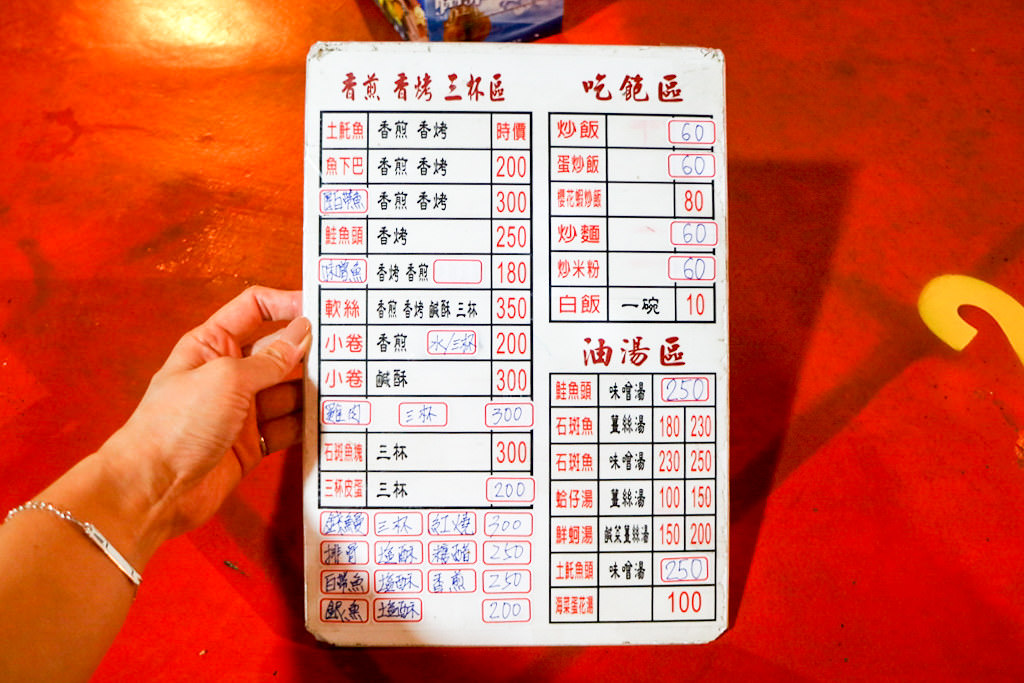 香煎 香烤 三杯區
土魠魚 香煎 香烤 時價
魚下巴 香煎 香烤 200
白帶魚 香煎 香烤 300
鮭魚頭 香烤 250
味噌魚 香烤 香煎 180
軟絲 香煎 香烤 鹹酥 三杯 350
小卷 香煎 水/三杯 200
小卷 鹹酥 300
雞肉 三杯 300
石斑魚塊 三杯 300
三杯皮蛋 三杯 200
三杯 紅燒 300
排骨 塩酥 糖醋 250
白帶魚 塩酥 香煎 250
銀魚 塩酥 200
吃飽區
炒飯 60
蛋炒飯 60
櫻花蝦炒飯 80
炒麵 60
炒米粉 60
白飯 一碗 10
油湯區
鮭魚頭 味噌湯 250
石斑魚 薑絲湯 180 230
石斑魚 味噌湯 230 250
蛤仔湯 薑絲湯 100 150
鮮蚵湯 鹹菜薑絲湯 150 200
土魠魚頭 味噌湯 250
海菜蛋花湯 100